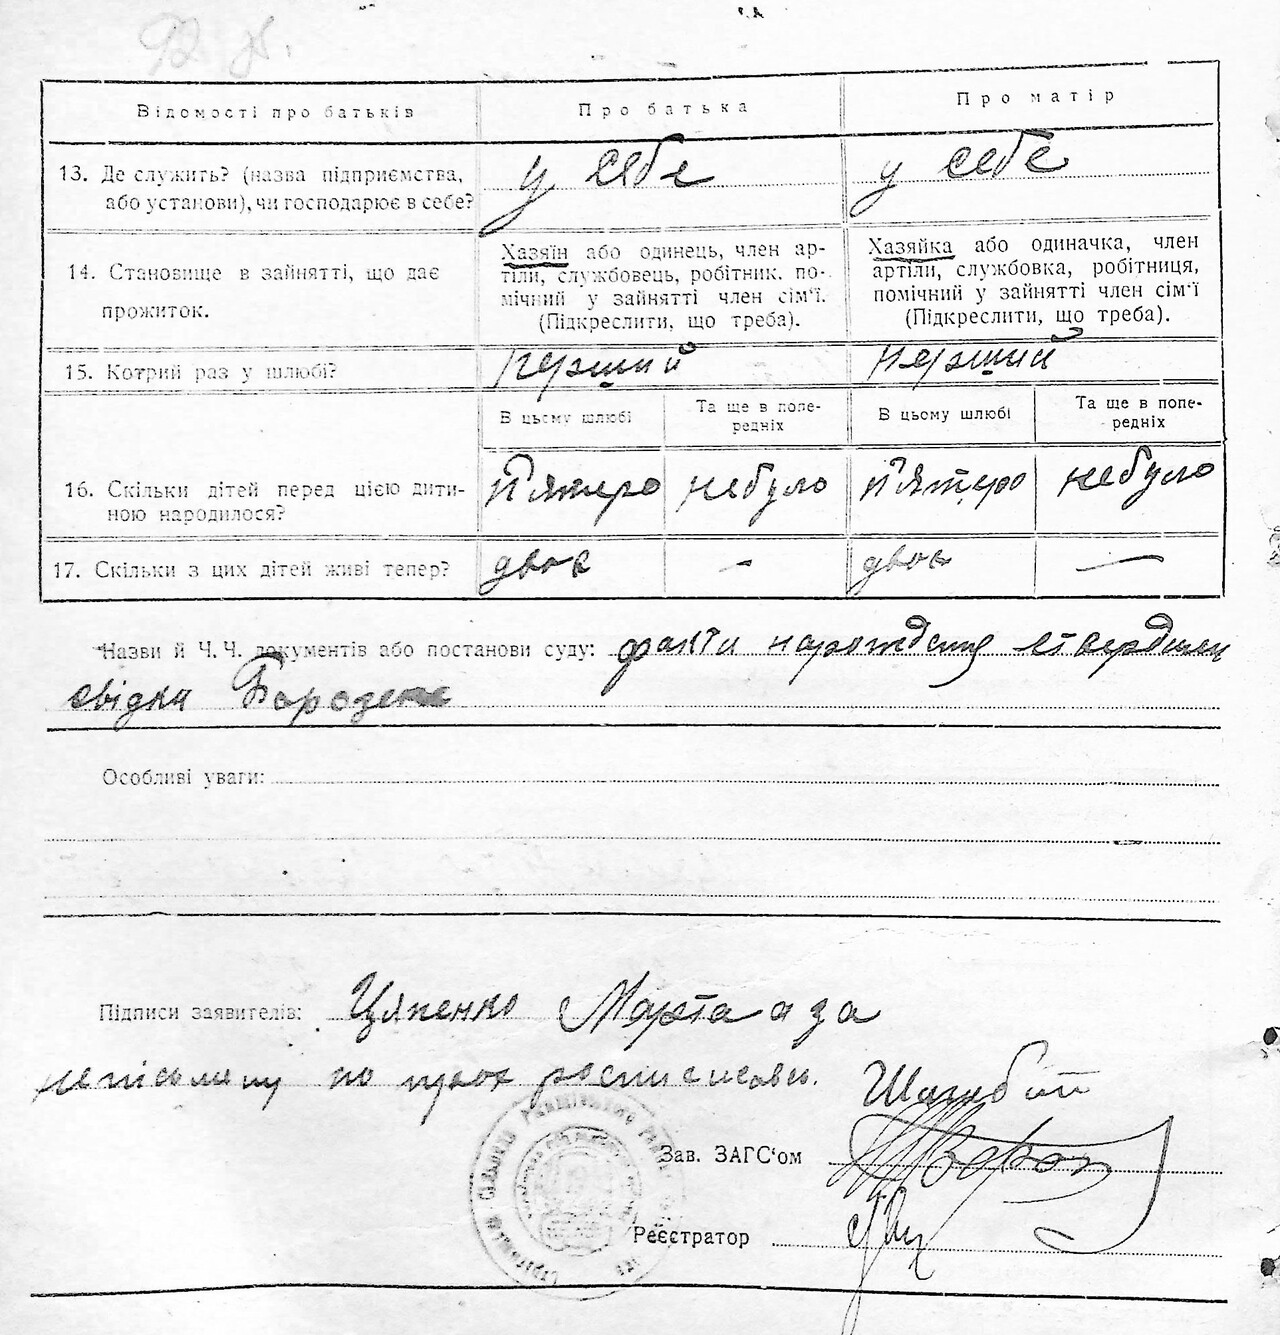 92
Відомості про батьків
Про батька
Про матір
13. Де служить? (назва підприємства, або установи), чи господарює в себе?
у себе
у себе
14. Становище в зайнятті, що дає прожиток.
Хазяїн або одинець, член ар-
тіли, службовець, робітник. по-
мічний у зайнятті член сім'ї.
(Підкреслити, що треба).
Хазяйка або одиначка, член
артіли, службовка, робітниця,
помічний у зайнятті член сім'ї
(Підкреслити, що треба).
15. Котрий раз у шлюбі?
перший
перший
В цьому шлюбі
Та ще в попе-
редніх
В цьому шлюбі
Та ще в попе-
редніх
16. Скільки дітей перед цією дити-
ною народилося?
П'ятеро
небуло
П'ятеро
небуло
17. Скільки з цих дітей живі тепер?
двоє
—
двоє
—
Назви й Ч. Ч. документів або постанови суду: факти народження
свідки
Особливі уваги:
Підписи заявителів: Цяпенко Марта а за
Зав. ЗАГС'ом
Реєстратор